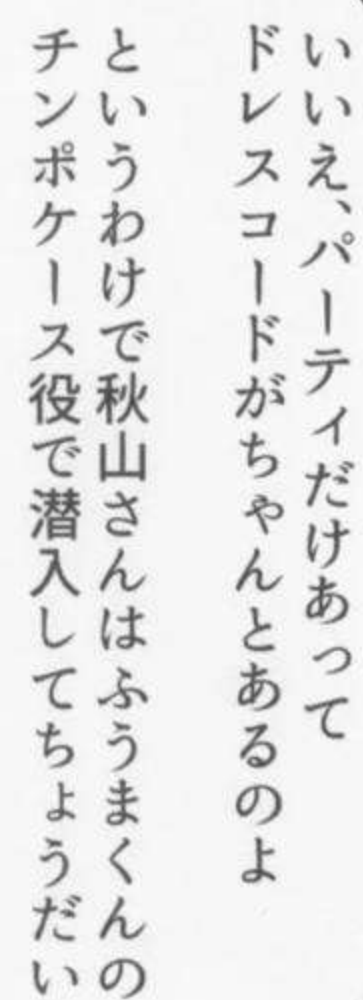 いいえ、パーティだけあって
ドレスコードがちゃんとあるのよ
というわけで秋山さんはふうまくんの
チンポケース役で潜入してちょうだい